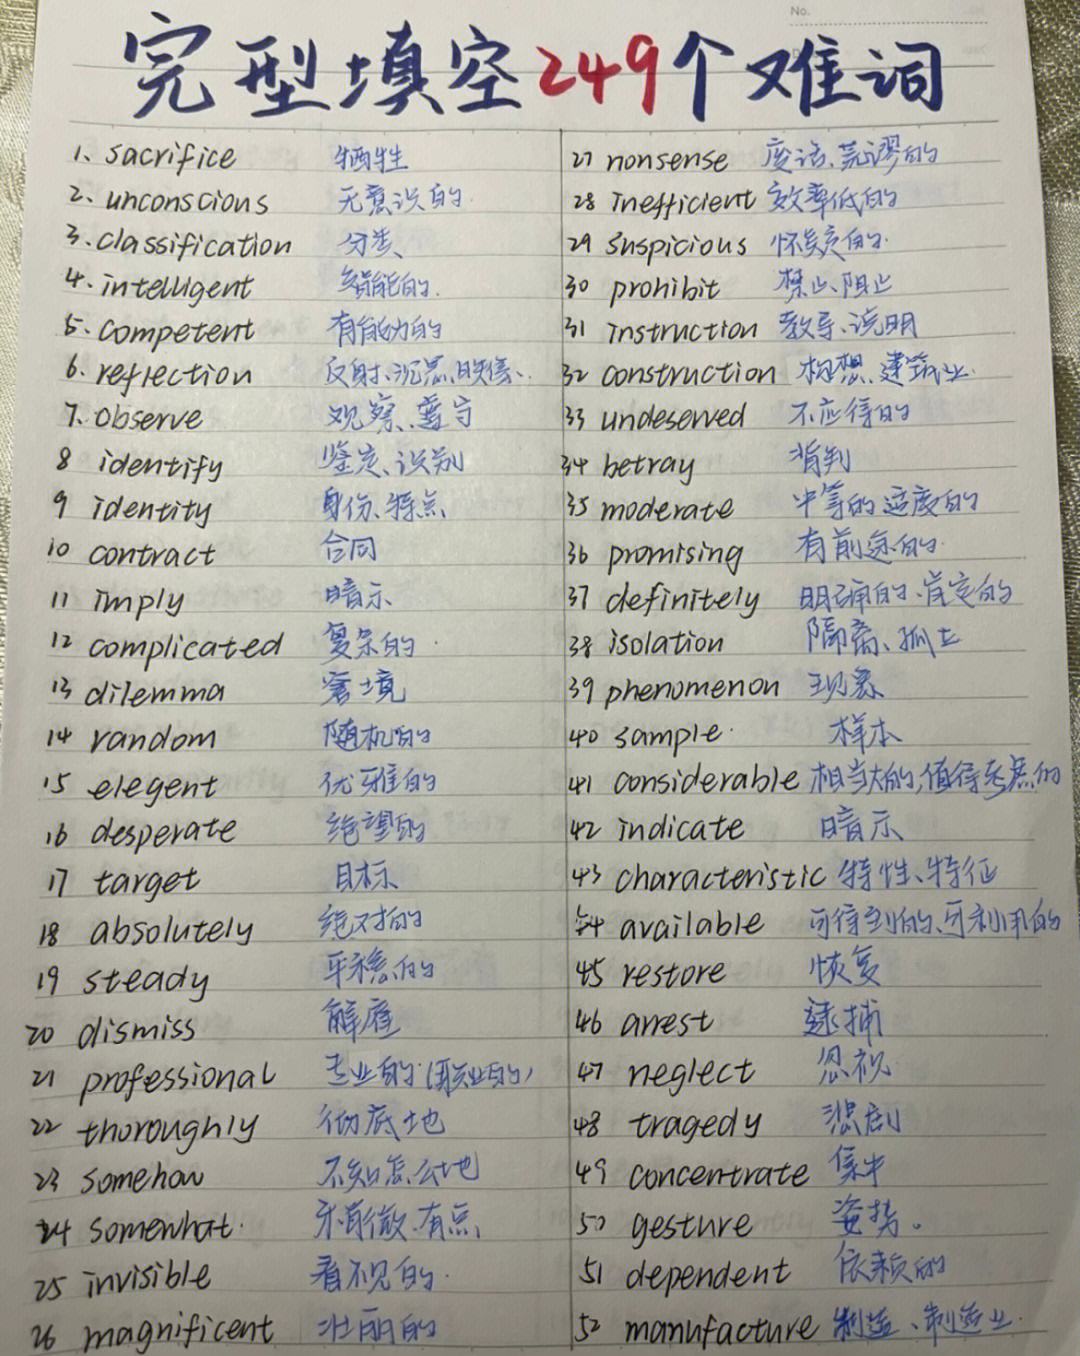 No.
完型填空249个难词
1、sacrifice 牺牲
2、unconscious 无意识的
3.classification 分类
4.intelligent 智能的.
5.competent 有能力的
6.reflection 反射、沉思、映像、
7.observe 观察、遵守
8 identify 鉴定、识别
9 identity 身份、特点
10 contract 合同
11 imply 暗示
12 complicated 复杂的
13 dilemma 窘境
14 random 随机的
15 elegent 优雅的
16 desperate 绝望的
17 target 目标
18 absolutely 绝对的
19 steady 平稳的
20 dismiss 解雇
21 professional 专业的(职业的)
22 thoroughly 彻底地
23 somehow 不知怎么地
24 somewhat 稍微、有点
25 invisible 看不见的
26 magnificent 壮丽的
27 nonsense 废话、荒谬的
28 inefficient 效率低的
29 suspicious 怀疑的
30 prohibit 禁止、阻止
31 instruction 教导、说明
32 construction 构想、建筑业
33 undeserved 不应得的
34 betray 背判
35 moderate 中等的 适度的
36 promising 有前途的
37 definitely 明确的、肯定的
38 isolation 隔离、孤立
39 phenomenon 现象
40 sample 样本
41 considerable 相当大的,值得考虑的
42 indicate 暗示
43 characteristic 特性、特征
44 available 可得到的、可利用的
45 restore 恢复
46 arrest 逮捕
47 neglect 忽视
48 tragedy 悲剧
49 concentrate 集中
50 gesture 姿势。
51 dependent 依赖的
52 manufacture 制造、制造业